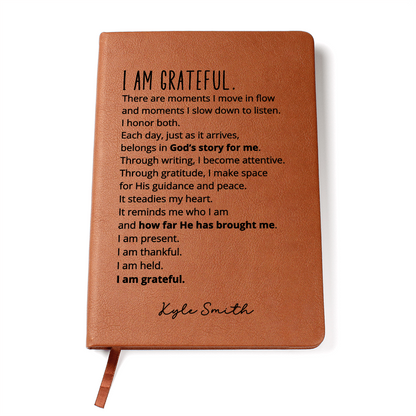 I AM GRATEFUL.
There are moments I move in flow
and moments I slow down to listen.
I honor both.
Each day, just as it arrives,
belongs in God's story for me.
Through writing, I become attentive.
Through gratitude, I make space
for His guidance and peace.
It steadies my heart.
It reminds me who I am
and how far He has brought me.
I am present.
I am thankful.
I am held.
I am grateful.
Kyle Smith